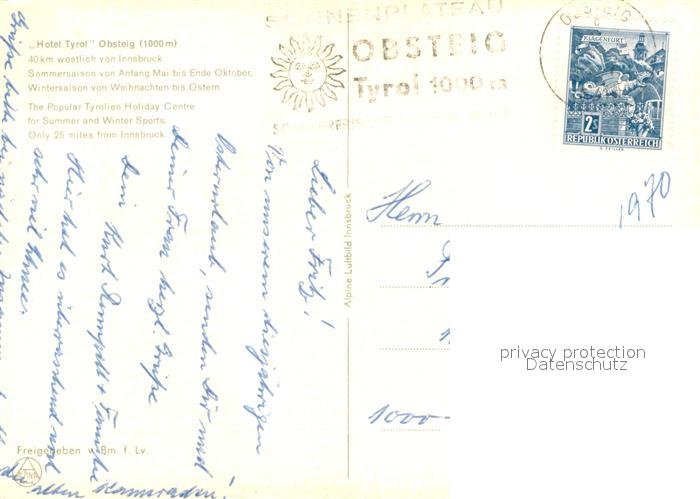 „Hotel Tyrol" Obsteig (1000 m)
40 km westlich von Innsbruck
Sommersaison von Anfang Mai bis Ende Oktober,
Wintersaison von Weihnachten bis Ostern
The Popular Tyrolien Holiday Centre
for Summer and Winter Sports.
Only 25 miles from Innsbruck
SONNENPLATEAU
OBSTEIG
Tyrol 1000 m
OBSTEIG
KLAGENFURT
2S
REPUBLIK ÖSTERREICH
Lieber Fritz!
Von unserem diesjährigen
Osterurlaub, senden Dir und
Deiner Frau herzl. Grüße
Dein Kurt + Familie
Hier hat es überraschend noch
sehr viel Schnee.
Grüße bitte bei
die alten Kameraden!
Alpine Luftbild Innsbruck
Herrn
1970
1000
Freigegeben v. Bm. f. Lv.
privacy protection
Datenschutz